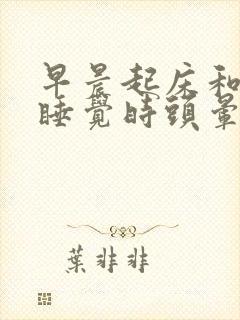 早晨起床和
睡覺時頭暈
葉非非